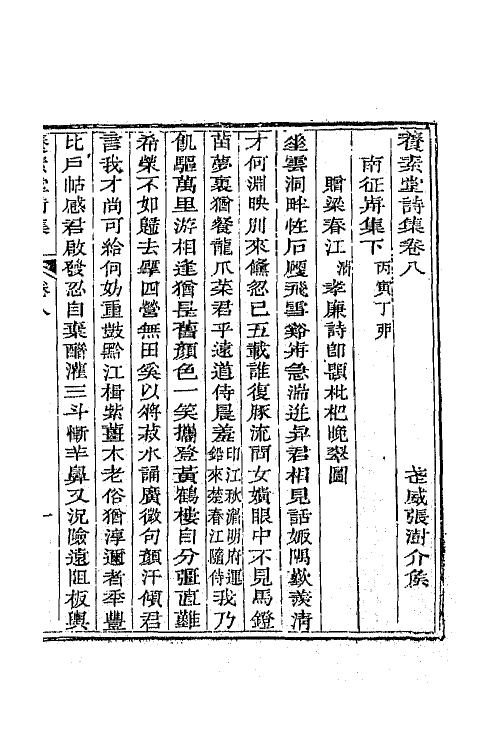 養素堂詩集卷八
武威張澍介侯
南征再集下 丙寅丁卯
贈梁春江 淯 孝廉詩即題枇杷晚翠圖
雲洞畔性石礙飛雪谿舟急湍逝與君相見話娵隅歎羨清
才何淵映別來倏忽已五載誰復豚流問女嬇眼中不見馬鐙
苗夢裏猶餐龍爪菜君乎遠道侍晨羞 印江耿 明府運鉛來楚春江隨侍 我乃
飢驅萬里游相逢猶是舊顏色一笑攜登黃鶴樓自分彊直難
希榮不如歸去 四營無田奚以將菽水誦廣徵句顏汗傾君
言我才尚可給何妨重鼓黔江楫紫薑木老俗猶淳邇者年豐
比戶帖感君啟發忍自棄醋灌三斗慚羊鼻又況險遠阻板輿
養素堂詩集 卷八 一